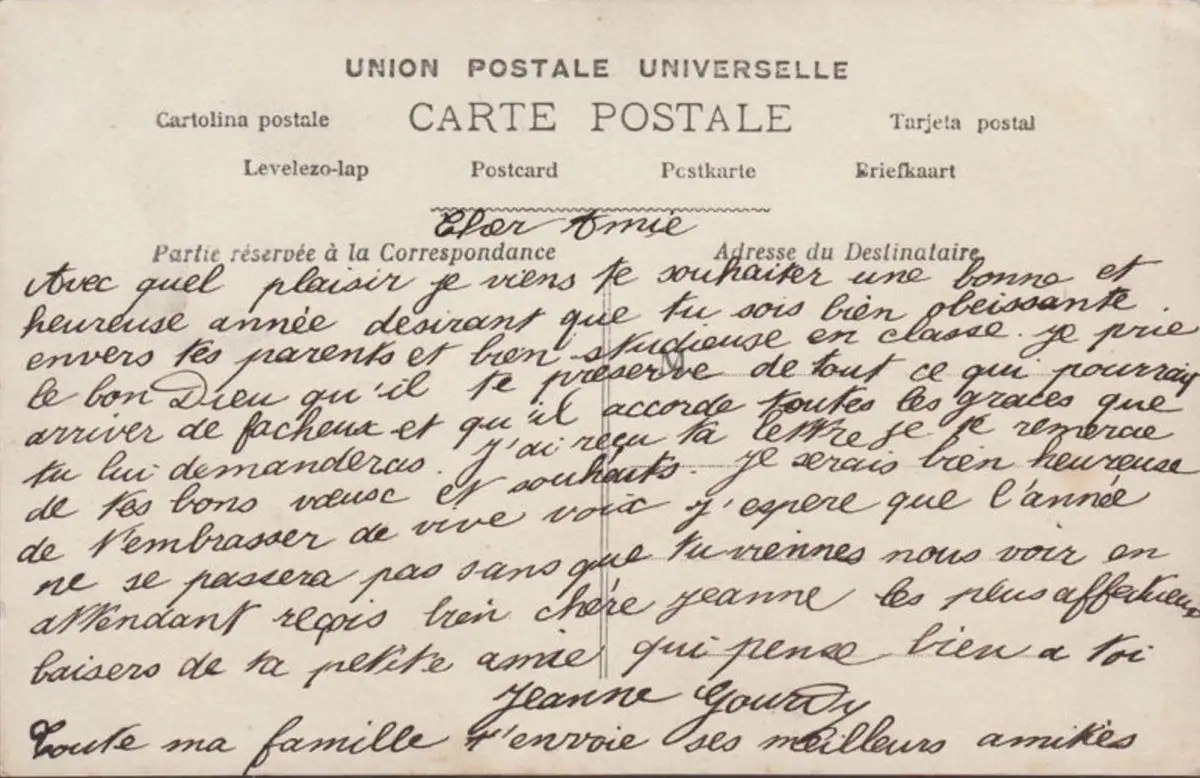 UNION POSTALE UNIVERSELLE
Cartolina postale CARTE POSTALE Tarjeta postal
Levelezo-lap Postcard Postkarte Briefkaart
Cher Amie
Partie réservée à la Correspondance Adresse du Destinataire
Avec quel plaisir je viens te souhaiter une bonne et
heureuse année désirant que tu sois bien obeissante
envers tes parents et bien studieuse en classe. je prie
le bon Dieu qu'il te préserve de tout ce qui pourrait
arriver de facheux et qu'il accorde toutes les graces que
tu lui demanderas. J'ai reçu ta lettre je te remercie
de tes bons vœux et souhaits. Je serais bien heureuse
de t'embrasser de vive voix j'espere que l'année
ne se passera pas sans que tu viennes nous voir en
attendant reçois bien chère jeanne les plus affectueux
baisers de ta petite amie qui pense bien a toi
Jeanne Gourdy
Toute ma famille t'envoie ses meilleurs amitiés